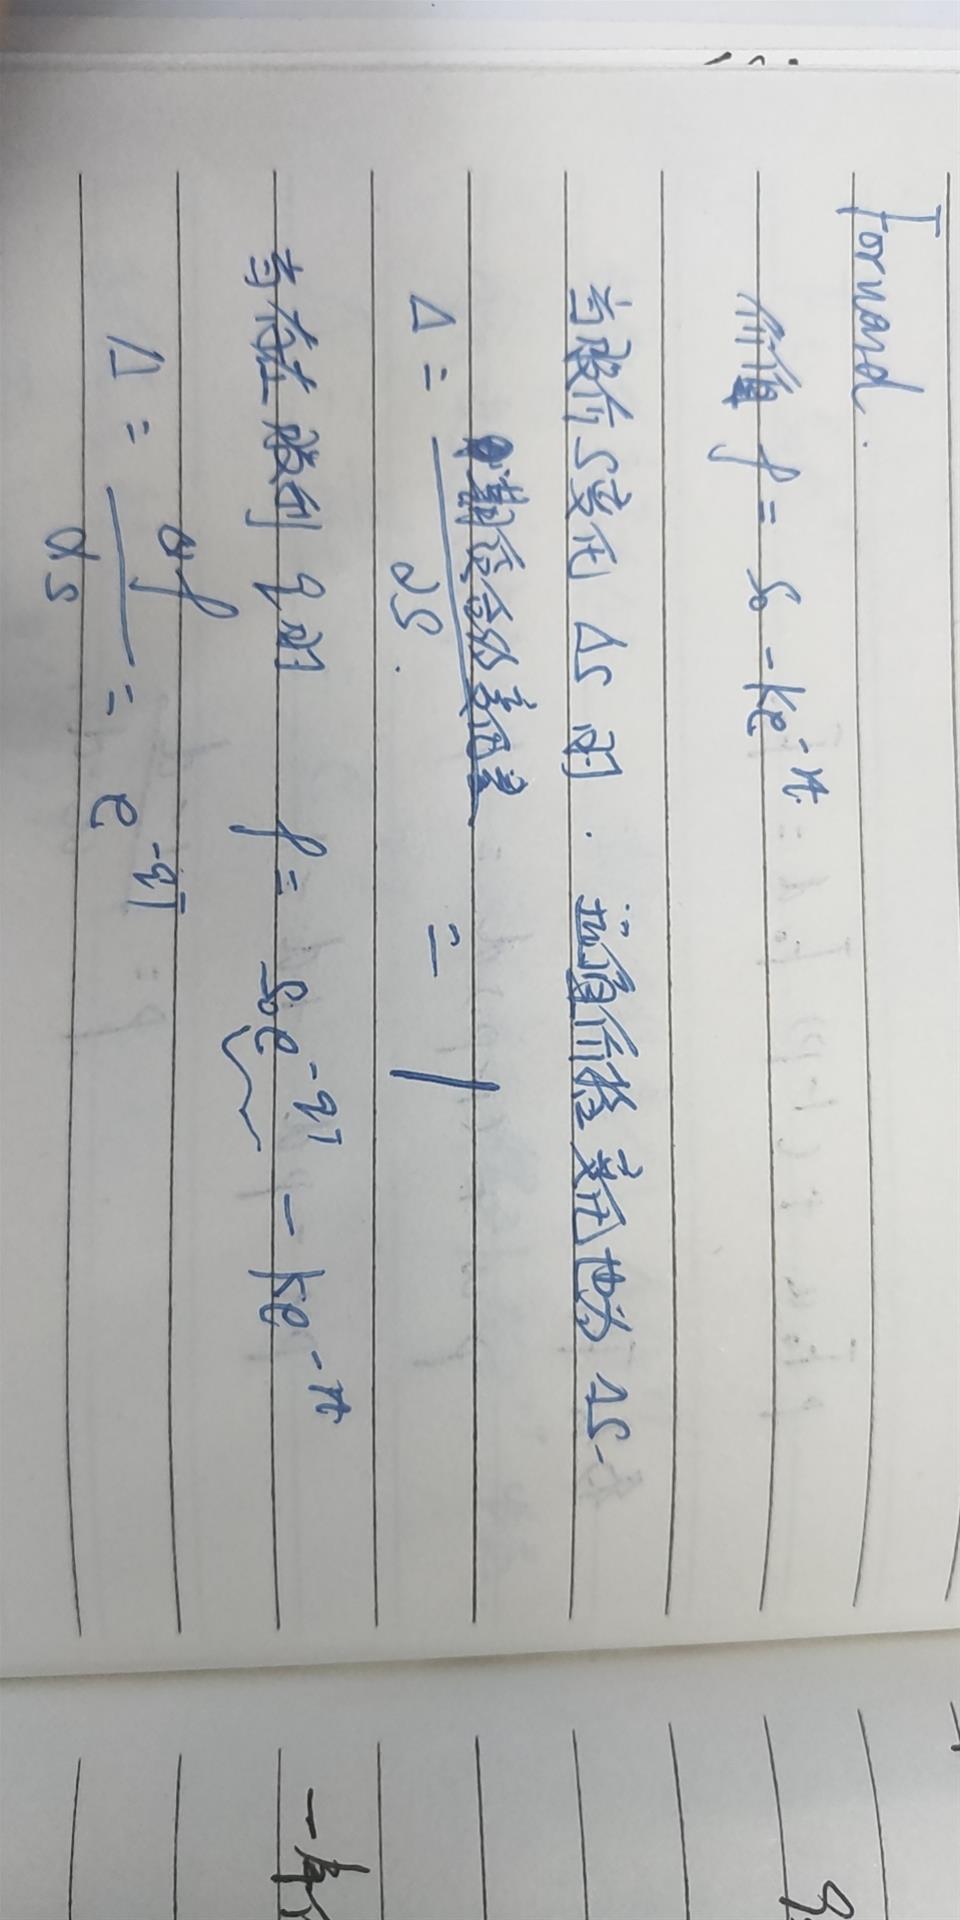 Forward.
价值 f = S₀ - Ke^{-rt}
当股价S变化 ΔS 时. 远期价格变化也为 ΔS.
Δ = 期货合约变化量 / ∂S. = 1
当存在股利 q 时 f = S₀e^{-qT} - Ke^{-rt}
Δ = ∂f / ∂S = e^{-qT}